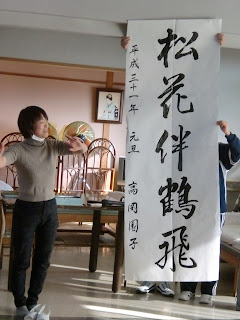 松花伴鶴飛
平成三十一年 元旦 高岡園子